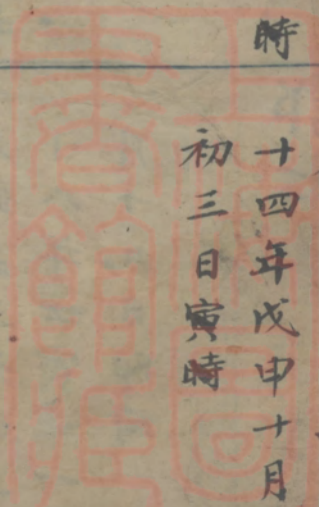 時
十四年戊申十月
初三日寅時